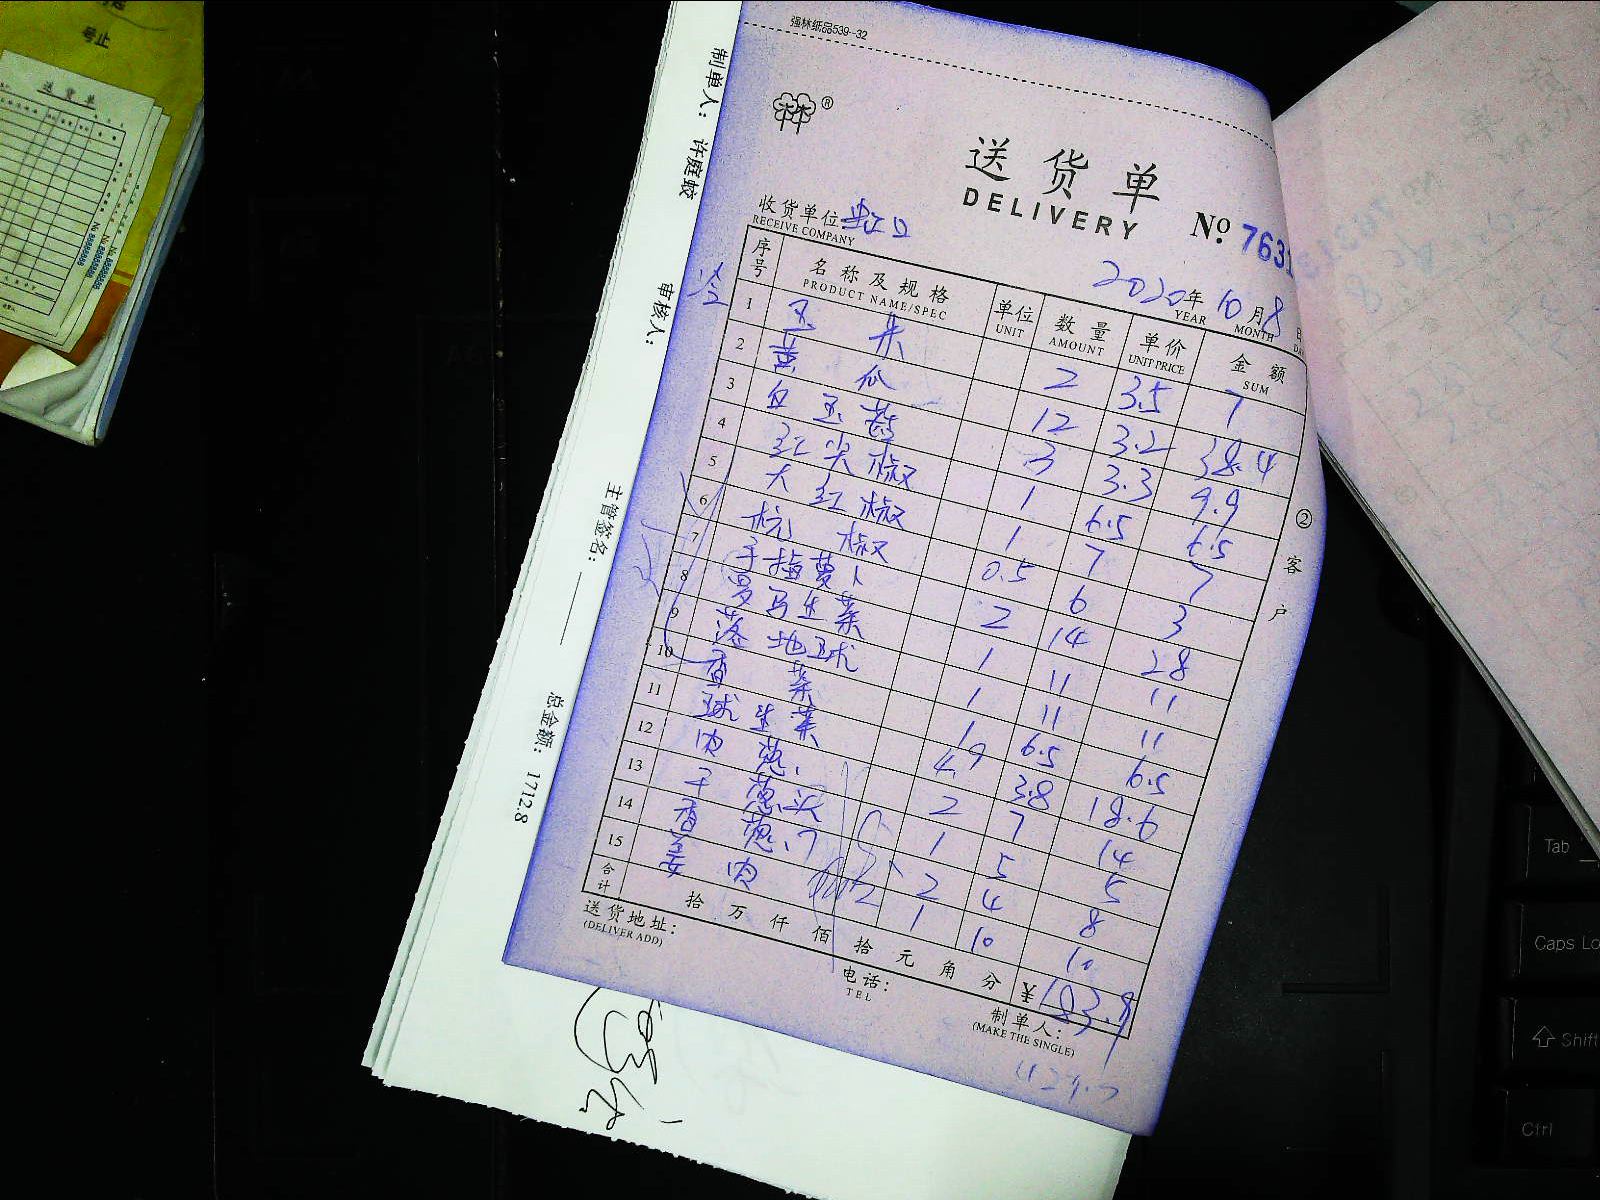 强林纸品539--32
制单人： 许庭蛟
审核人：
主管签名：
总金额： 1712.8
送货单
DELIVERY
No. 7631
收货单位 虹口
RECEIVE COMPANY
2020年 10月 8
YEAR MONTH
序号 名称及规格 单位 数量 单价 金额
PRODUCT NAME/SPEC UNIT AMOUNT UNIT PRICE SUM
1 玉米 2 3.5 7
2 黄瓜 12 3.2 38.4
3 白玉菇 3 3.3 9.9
4 红尖椒 1 6.5 6.5
5 大红椒 1 7 7
6 杭椒 0.5 6 3
7 手指萝卜 2 14 28
8 罗马生菜 1 11 11
9 落地球 1 11 11
10 香菜 1 6.5 6.5
11 球生菜 4.9 3.8 18.6
12 肉葱 2 7 14
13 干葱头 1 5 5
14 香葱 2 4 8
15 姜肉 1 10 10
合计 拾 万 仟 佰 拾 元 角 分 ¥183.9
送货地址：
(DELIVER ADD)
电话：
TEL
制单人：
(MAKE THE SINGLE)
② 客户
送货单
号止
Tab
Caps Lo
Shift
Ctrl